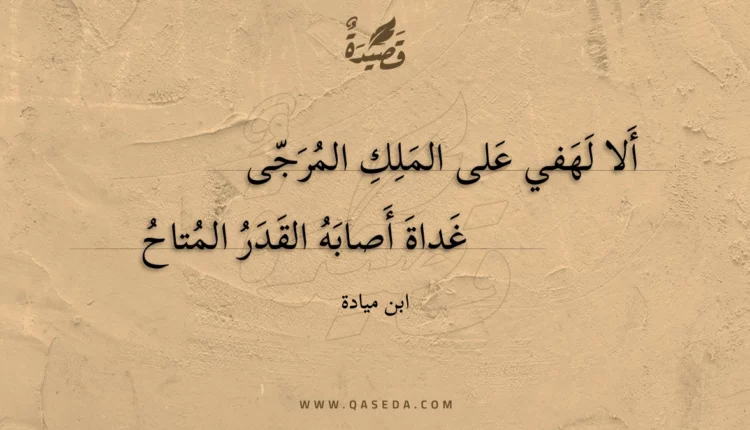 قَصِيدَةٌ
أَلا لَهَفي عَلى المَلِكِ المُرَجّى
غَداةَ أَصابَهُ القَدَرُ المُتاحُ
ابن ميادة
WWW.QASEDA.COM